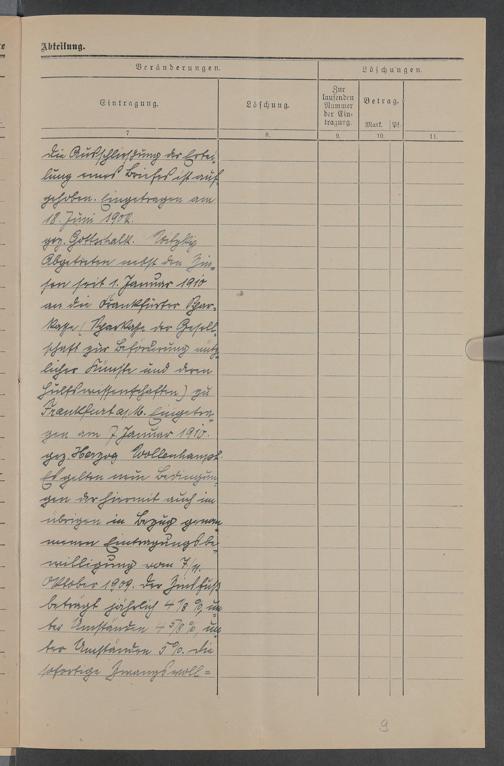 Abteilung.
Veränderungen.
Löschungen.
Eintragung.
Löschung.
Zur
laufenden
Nummer
der Ein-
tragung.
Betrag.
Mark. Pf.
7. 8. 9. 10. 11.
Die Ausschließung der Ertei-
lung eines Briefes ist auf-
gehoben. Eingetragen am
18. Juni 1902.
gez. Gottschalk.
Abgetreten nebst den Zin-
sen seit 1. Januar 1910
an die Frankfurter Spar-
kasse (Sparkasse der Gesell-
schaft zur Beförderung nütz-
licher Künste und deren
Hülfswissenschaften) zu
Frankfurt a/M. Eingetra-
gen am 7. Januar 1910.
gez. Herzog Wollenhaupt.
Es gelten neue Bedingun-
gen der hiermit auch im
übrigen in Bezug genom-
menen Eintragungsbe-
willigung vom 7/11.
Oktober 1909. Der Zinsfuß
beträgt jährlich 4 1/8 %, un-
ter Umständen 4 5/8 %, un-
ter Umständen 5 %. Die
sofortige Zwangsvoll=
9